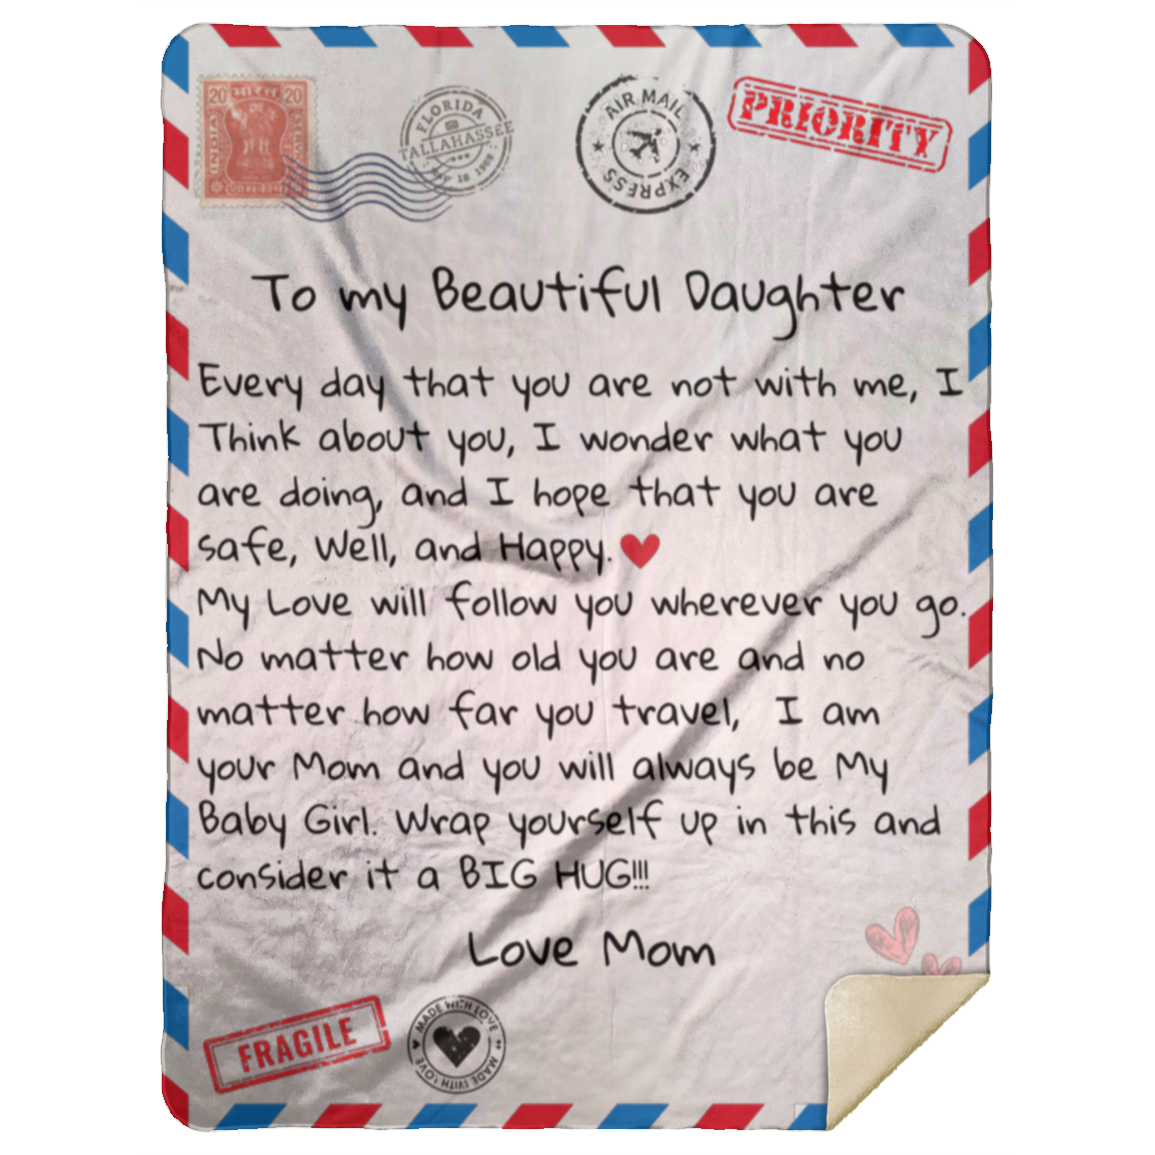 20 भारत 20
INDIA
FLORIDA
TALLAHASSEE
MAY 18 1988
AIR MAIL
EXPRESS
PRIORITY
To my Beautiful Daughter
Every day that you are not with me, I
Think about you, I wonder what you
are doing, and I hope that you are
safe, Well, and Happy.
My Love will follow you wherever you go.
No matter how old you are and no
matter how far you travel, I am
your Mom and you will always be My
Baby Girl. Wrap yourself up in this and
consider it a BIG HUG!!!
Love Mom
FRAGILE
MADE WITH LOVE
MADE WITH LOVE